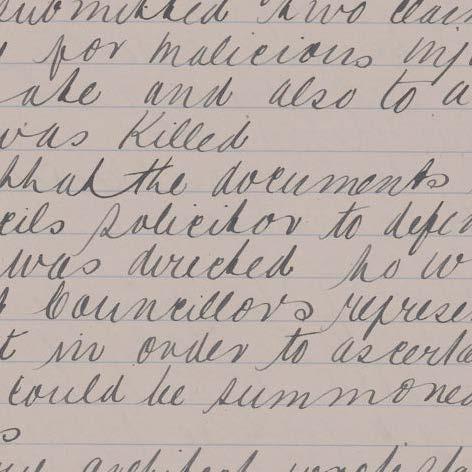 submitted two clai
for malicious inj
ate and also to a
was Killed
that the documents
cils solicitor to defen
was directed to w
Councillors represe
t in order to ascerta
could be summoned
s
architect